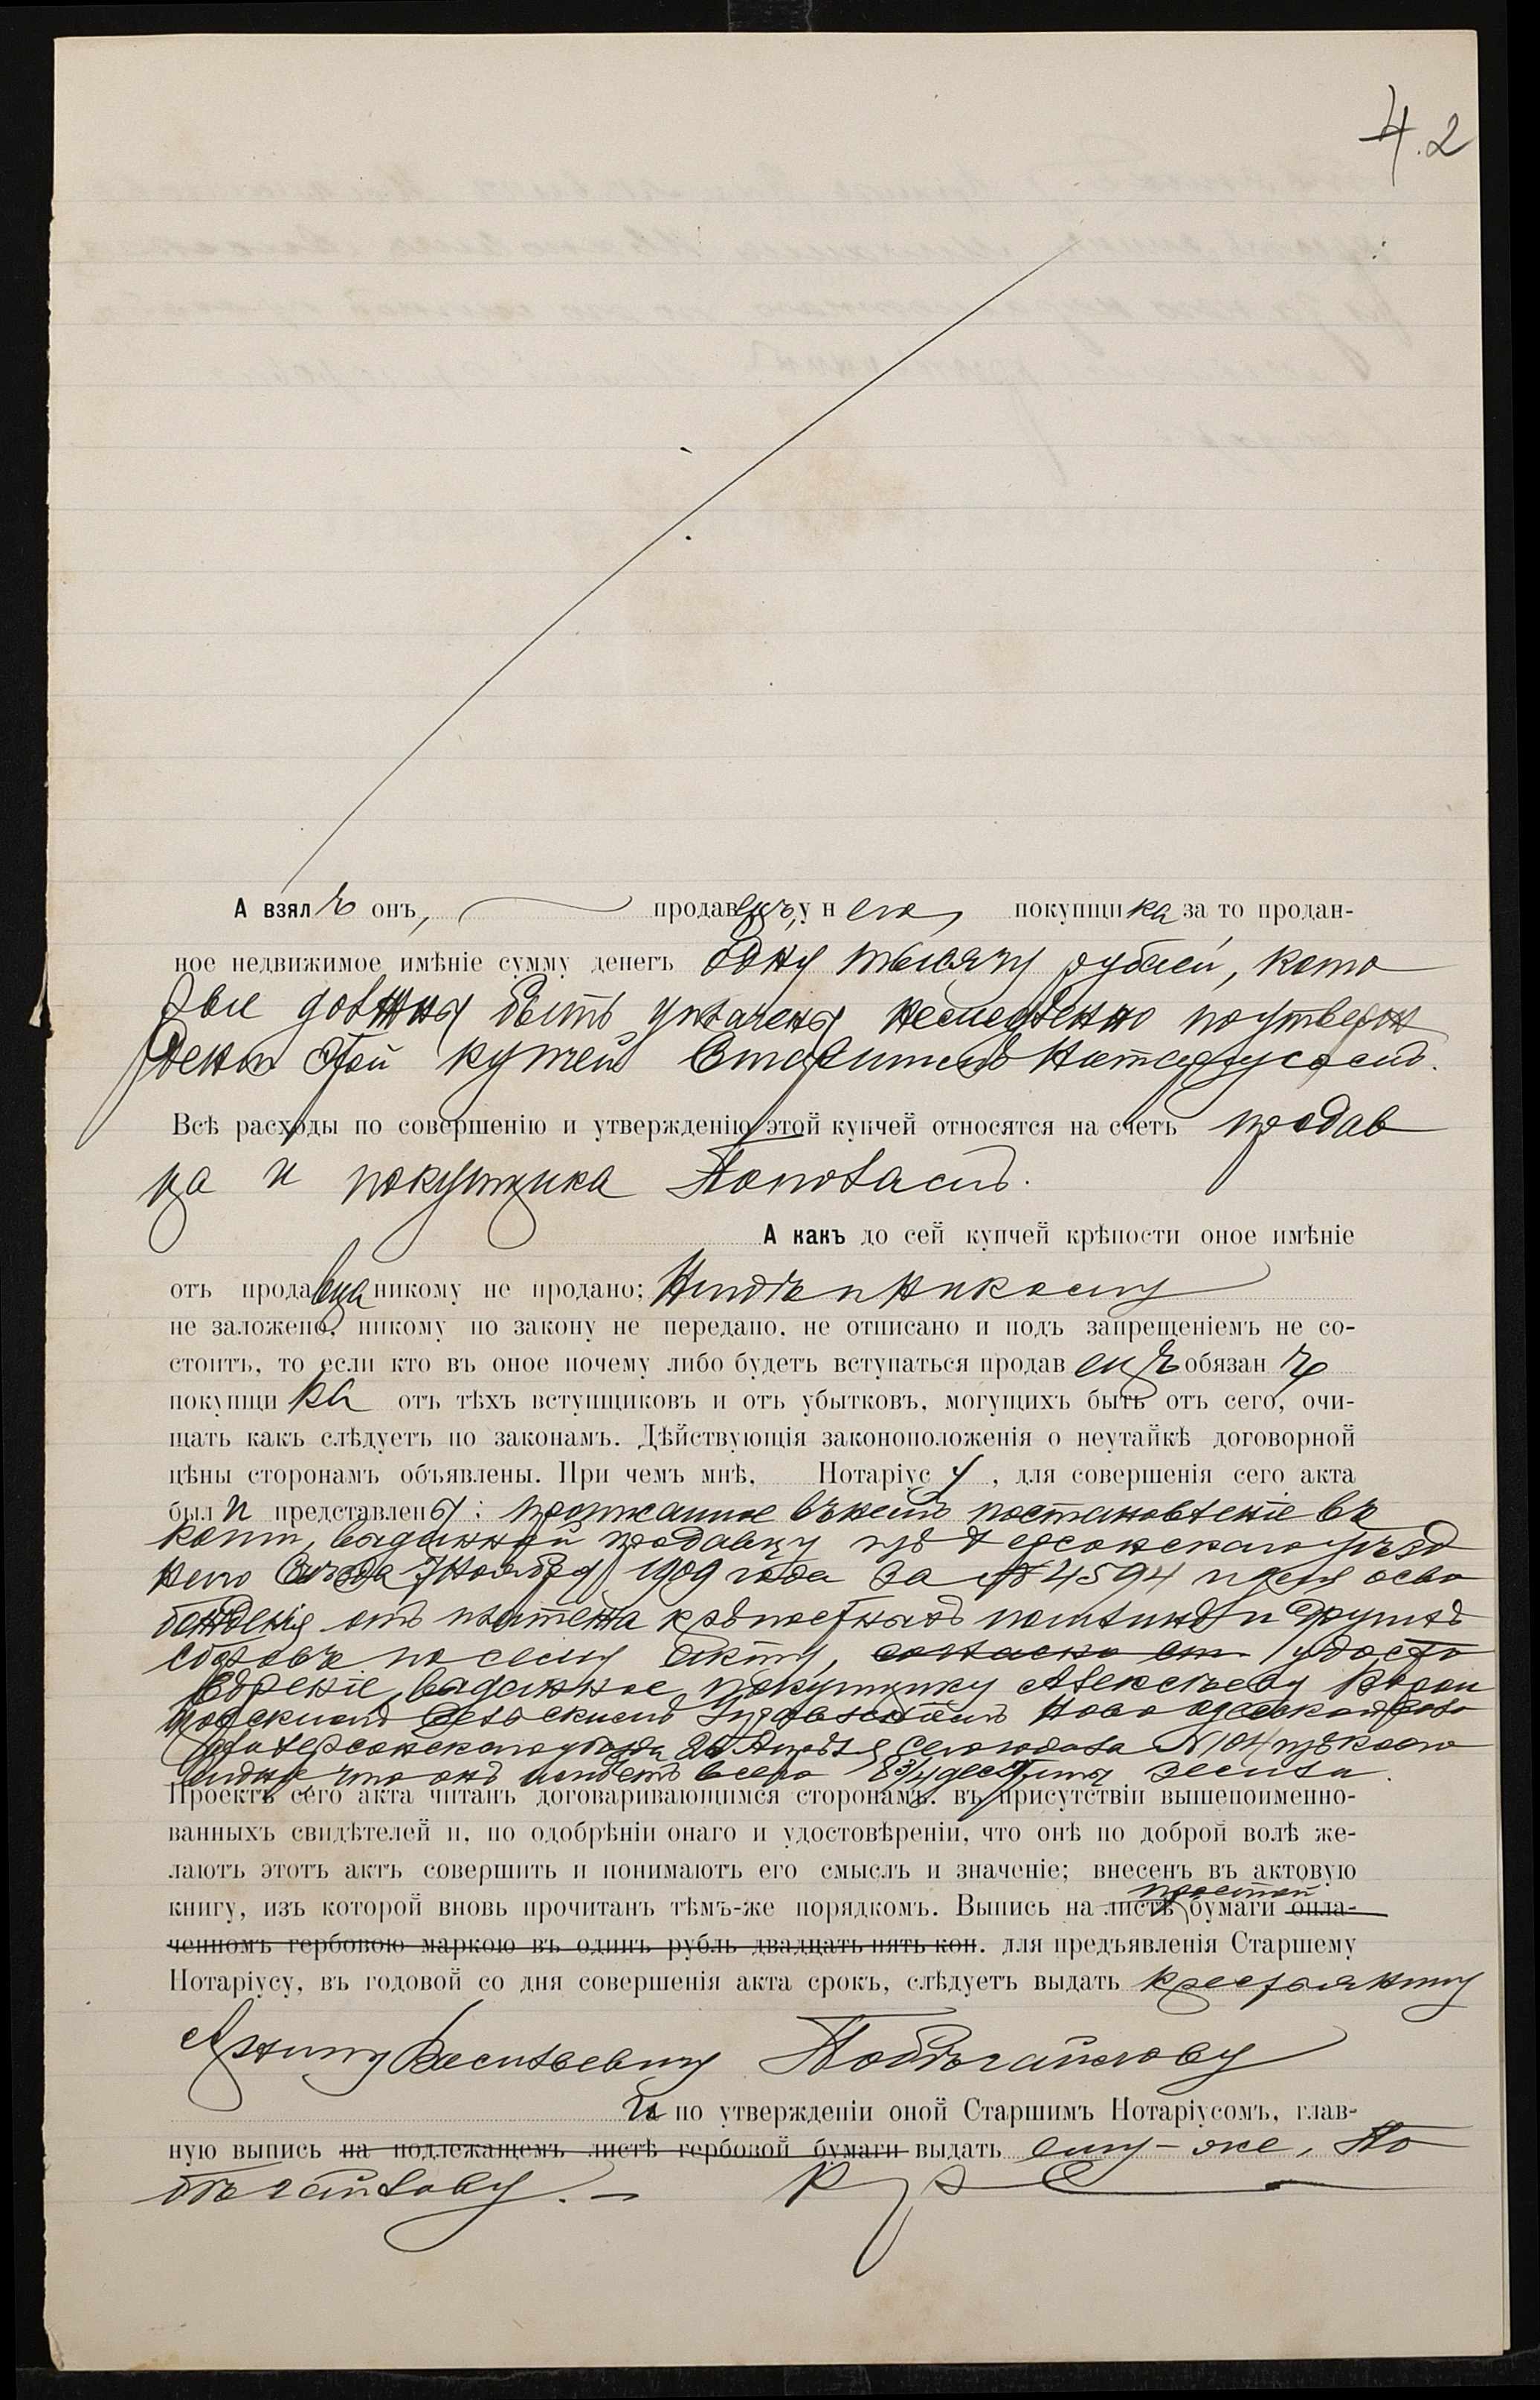 4.2
А взялъ онъ, продавецъ, у него, покупщика за то продан-
ное недвижимое имѣніе сумму денегъ одну тысячу рублей, кото
рые должны быть уплачены немедленно по утверж
деніи этой купчей Старшимъ Нотаріусомъ.
Всѣ расходы по совершенію и утвержденію этой купчей относятся на счетъ продав
ца и покупщика пополамъ.
А какъ до сей купчей крѣпости оное имѣніе
отъ продавца никому не продано; нигдѣ и никому
не заложено, никому по закону не передано, не отписано и подъ запрещеніемъ не со-
стоитъ, то если кто въ оное почему либо будетъ вступаться продавецъ обязанъ
покупщика отъ тѣхъ вступщиковъ и отъ убытковъ, могущихъ быть отъ сего, очи-
щать какъ слѣдуетъ по законамъ. Дѣйствующія законоположенія о неутайкѣ договорной
цѣны сторонамъ объявлены. При чемъ мнѣ, Нотаріусу, для совершенія сего акта
были представлены: прописанное выше постановленіе въ
копіи, выданной продавцу изъ Херсонскаго уѣзд
наго Съѣзда 7 Ноября 1909 года за № 4594 и для осво
божденія отъ платежа крѣпостныхъ пошлинъ и другихъ
сборовъ по сему акту, согласно ст. удосто
вѣреніе, выданное покупщику Алексѣеву
Сельскимъ Управленіемъ Ново Одесской
Херсонскаго уѣзда 20 Апрѣля сего года за № 104 изъ коего
видно, что онъ имѣетъ всего 8 3/4 десятины земли.
Проектъ сего акта читанъ договаривающимся сторонамъ. въ присутствіи вышепоименно-
ванныхъ свидѣтелей и, по одобрѣніи онаго и удостовѣреніи, что онѣ по доброй волѣ же-
лаютъ этотъ актъ совершить и понимаютъ его смыслъ и значеніе; внесенъ въ актовую
простой
книгу, изъ которой вновь прочитанъ тѣмъ-же порядкомъ. Выпись на листѣ бумаги опла-
ченномъ гербовою маркою въ одинъ рубль двадцать пять коп. для предъявленія Старшему
Нотаріусу, въ годовой со дня совершенія акта срокъ, слѣдуетъ выдать крестьянину
Васильевичу
и по утвержденіи оной Старшимъ Нотаріусомъ, глав-
ную выпись на подлежащемъ листѣ гербовой бумаги выдать ему-же,